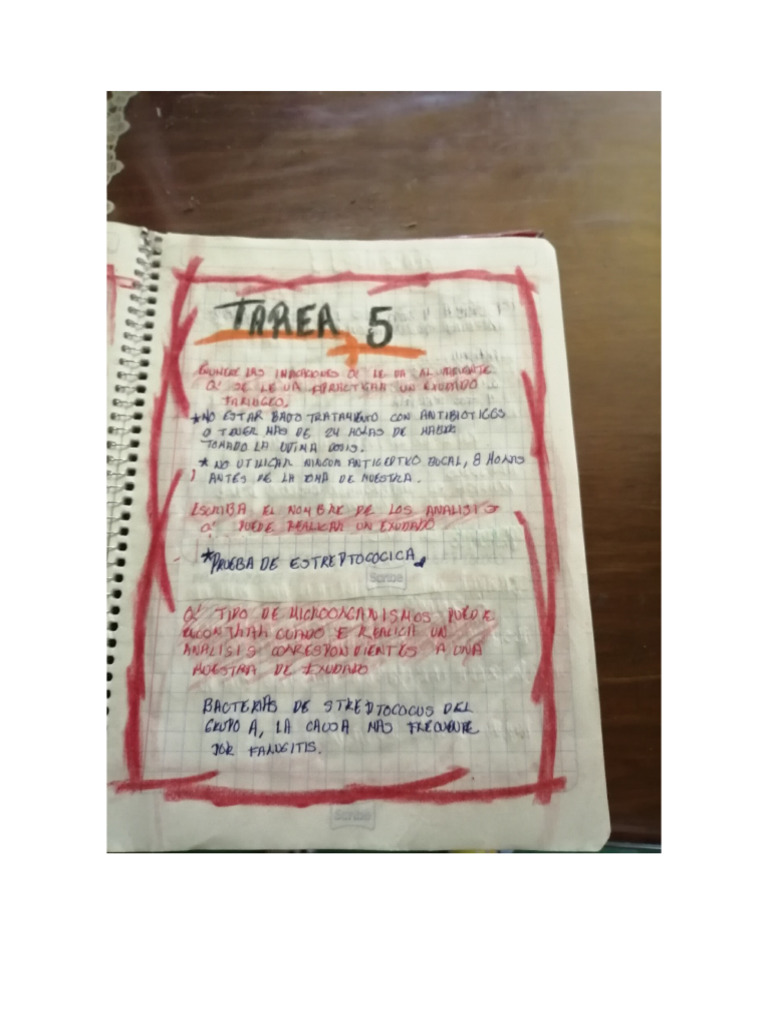 TAREA 5
ENUMERE LAS INDICACIONES Q' LE DA AL PACIENTE
Q' SE LE VA PRACTICAR UN EXUDADO
FARINGEO.
*NO ESTAR BAJO TRATAMIENTO CON ANTIBIOTICOS
O TENER MAS DE 24 HORAS DE HABER
TOMADO LA ULTIMA DOSIS.
* NO UTILIZAR NINGUN ANTICEPTICO BUCAL, 8 HORAS
ANTES DE LA TOMA DE MUESTRA.
ESCRIBA EL NOMBRE DE LOS ANALISIS
Q' PUEDE REALICAR UN EXUDADO
*PRUEBA DE ESTREPTOCOCICA.
Scribe
Q' TIPO DE MICROORGANISMOS PUEDE
ENCONTRAR CUADO E REALICA UN
ANALISIS CORRESPONDIENTES A UNA
MUESTRA DE EXUDADO
BACTERIAS DE STREPTOCOCUS DEL
GRUPO A, LA CAUSA MAS FRECUENTE
POR FARUGITIS.
Scribe